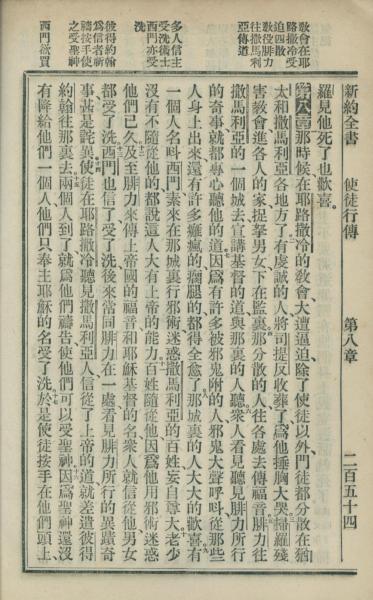 新約全書 使徒行傳 第八章 二百五十四
教會在耶
路撒冷受
迫四散
教役腓力
往撒馬利
亞傳道
多人信主
受洗術士
西門亦受
洗
彼得約翰
爲信者祈
禱按手使
之受聖神
西門欲買
羅見他死了也歡喜。
第八章那時候在耶路撒冷的教會大遭逼迫除了使徒以外門徒都分散在猶
太和撒馬利亞各地方了有虔誠的人將司提反收葬了爲他捶胸大哭掃羅殘
害教會進各人的家捉拏男女下在監裏那分散的人往各處去傳福音腓力往
撒馬利亞的一個城去宣講基督的道與那裏的人聽衆人看見聽見腓力所行
的奇事就都專心聽他的道因爲有許多被邪鬼附的人邪鬼大聲呼叫從那些
人身上出來還有許多癱瘋的瘸腿的都得全愈了那城裏的人大大的歡喜有
一個人名叫西門素來在那城裏行邪術迷惑撒馬利亞的百姓妄自尊大老少
沒有不隨從他的都說這人大有上帝的能力百姓隨從他因爲他用邪術迷惑
他們已久及至腓力來傳上帝國的福音和耶穌基督的名衆人就信從他男女
都受了洗西門也信了受了洗後來常同腓力在一處看見腓力所行的異蹟奇
事甚是詫異使徒在耶路撒冷聽見撒馬利亞人信從了上帝的道就差遣彼得
約翰往那裏去兩個人到了就爲他們禱告使他們可以受聖神因爲聖神還沒
有降給他們一個人他們只奉主耶穌的名受了洗於是使徒按手在他們頭上